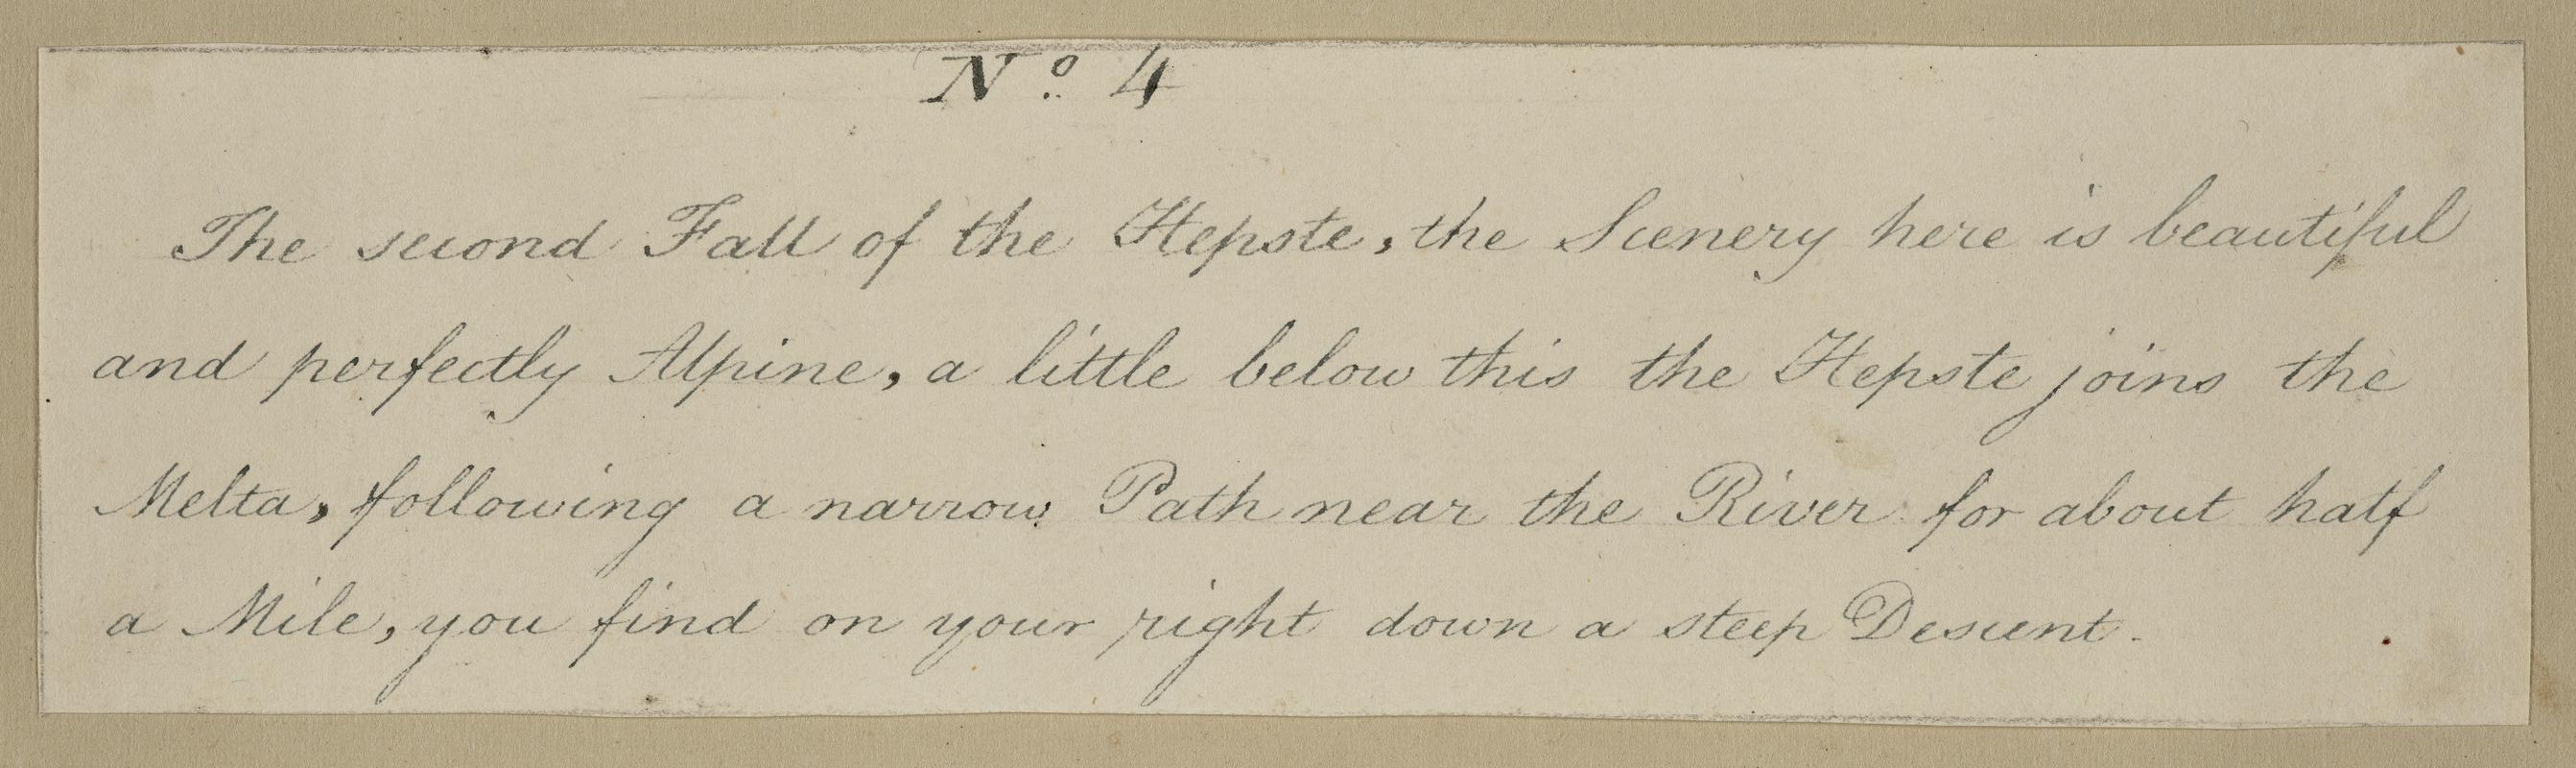 No. 4
The second Fall of the Hepste, the Scenery here is beautiful
and perfectly Alpine, a little below this the Hepste joins the
Melta, following a narrow Path near the River for about half
a Mile, you find on your right down a steep Descent.